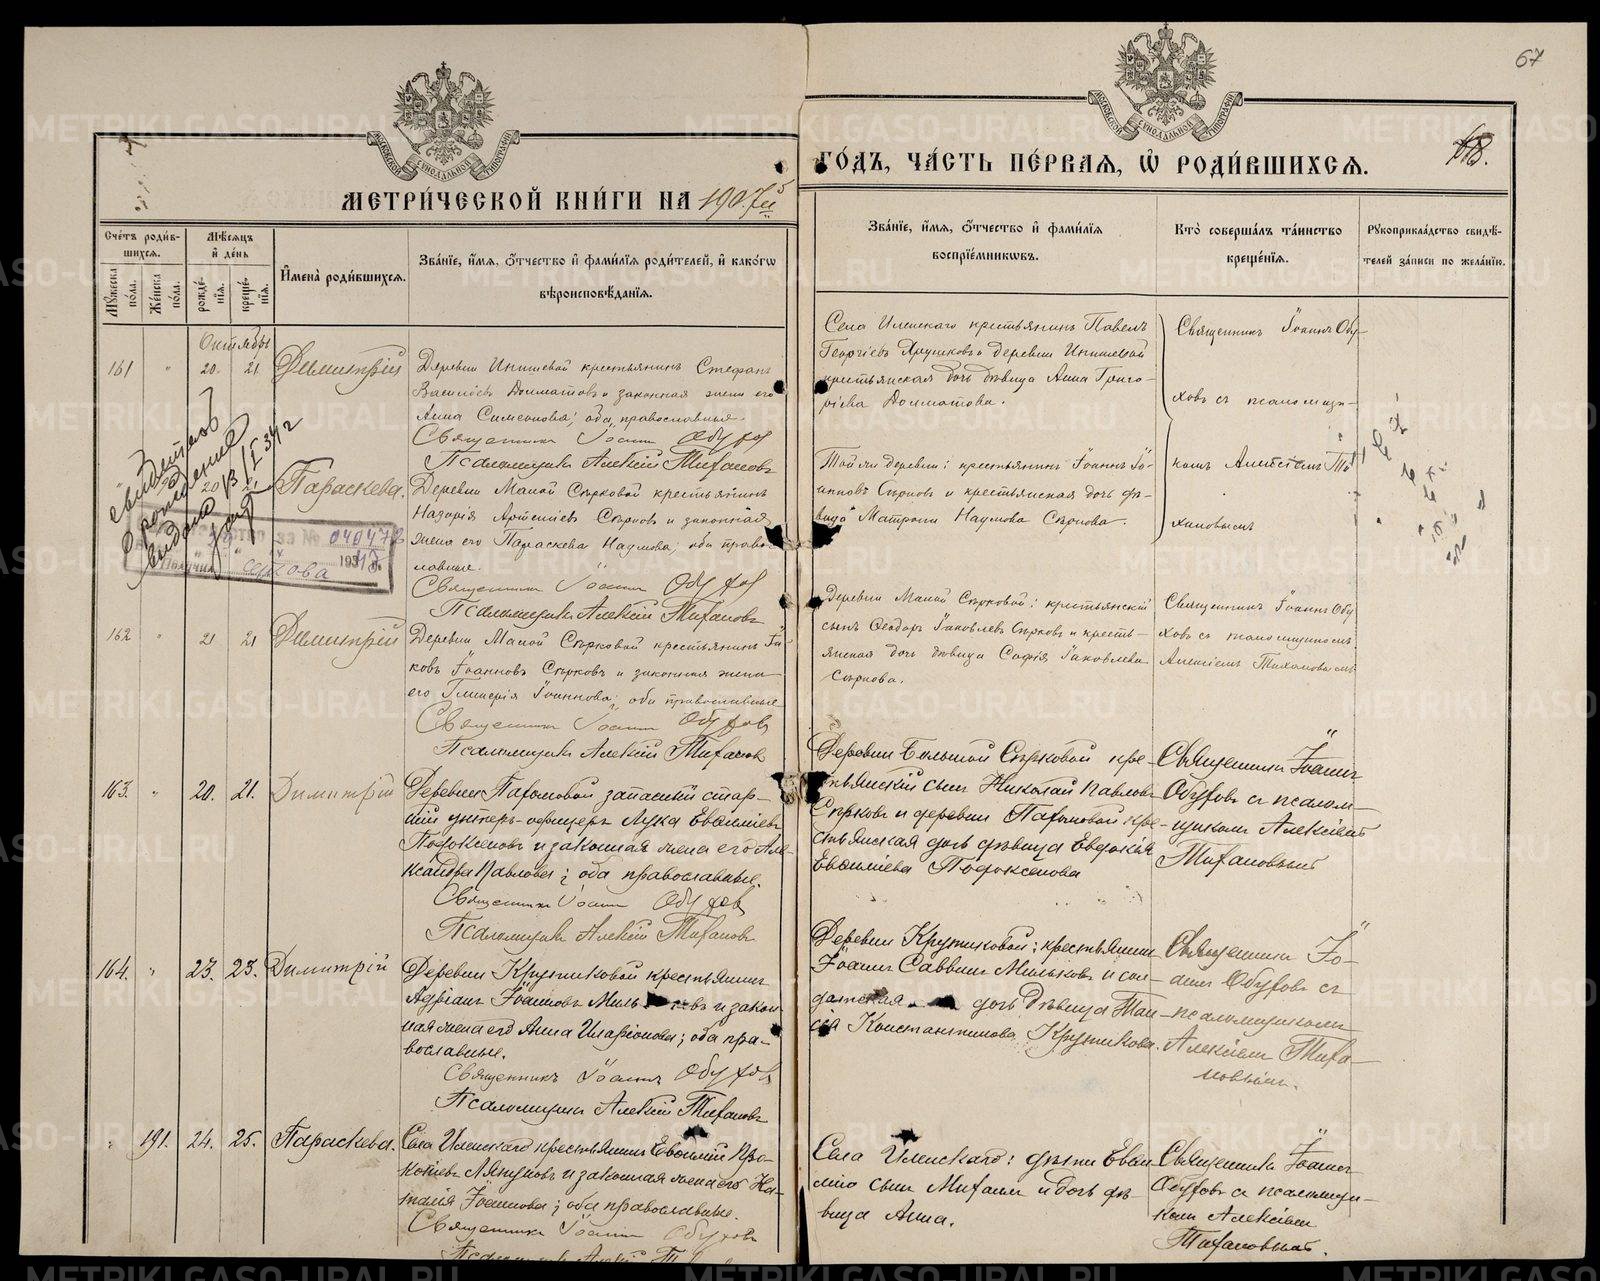 67
МЕТРИ́ЧЕСКОЙ КНИ́ГИ НА 1907й
ГО́ДЪ, ЧА́СТЬ ПЕ́РВАЯ, Ѡ҆ РОДИ́ВШИХСЯ.
118.
Сче́тъ роди́в-
шихся.
Мꙋ́жеска по́ла.
Же́нска по́ла.
Мѣ́сяцъ
и҆ де́нь
рожде́-
нїя.
креще́-
нїя.
И҆мена̀ роди́вшихся.
Зва́нїе, и҆́мя, ѻ҆́тчество и҆ фами́лїя роди́телей, и҆ како́гѡ
вѣроисповѣ́данїя.
Зва́нїе, и҆́мя, ѻ҆́тчество и҆ фами́лїя
воспрїе́мникѡвъ.
Кто̀ соверша́лъ та́инство
креще́нїя.
Рꙋкоприкла́дство свидѣ́-
телей за́писи по жела́нїю.
Октябрь
161 " 20. 21. Димитрій
Деревни Инишевой крестьянинъ Стефанъ
Васильевъ Долматовъ и законная жена его
Анна Симеонова; оба православные.
Священникъ Іоаннъ Обуховъ
Псаломщикъ Алексій Тихановъ
Села Иленскаго крестьянинъ Павелъ
Георгіевъ и деревни Инишевой
крестьянская дочь дѣвица Анна Григо-
рьева Долматова.
Священникъ Іоаннъ Обу-
ховъ съ псаломщи-
20 21 Параскева.
Деревни Малой Сѣрковой крестьянинъ
Назарій Артеміевъ Сѣрковъ и законная
жена его Параскева Наумова; оба право-
славные.
Священникъ Іоаннъ Обуховъ
Псаломщикъ Алексій Тихановъ
Той же деревни: крестьянинъ Іоаннъ Іо-
анновъ Сѣрковъ и крестьянская дочь дѣ-
вица Матрона Наумова Сѣркова.
комъ Алексіемъ Ти-
хановымъ
свидетельство
о рождении
выдано 13/I 34 г
ЗЭ № 040472
Получил
162 " 21 21 Димитрій
Деревни Малой Сѣрковой крестьянинъ Іа-
ковъ Іоанновъ Сѣрковъ и законная жена
его Гликерія Іоаннова; оба православные
Священникъ Іоаннъ Обуховъ
Псаломщикъ Алексій Тихановъ
Деревни Малой Сѣрковой: крестьянскій
сынъ Ѳеодоръ Іаковлевъ Сѣрковъ и кресть-
янская дочь дѣвица Софія Іаковлева
Сѣркова.
Священникъ Іоаннъ Обу
ховъ съ псаломщикомъ
Алексіемъ Тихановымъ
163. " 20. 21. Димитрій
Деревни Пахомовой запасный стар-
шій унтеръ-офицеръ Лука Евѳиміевъ
Подоксеновъ и законная жена его Але-
ксандра Павлова; оба православные.
Священникъ Іоаннъ Обуховъ
Псаломщикъ Алексій Тихановъ
Деревни Большой Сѣрковой кре-
стьянскій сынъ Николай Павловъ
Сѣрковъ и деревни Пахомовой кре-
стьянская дочь дѣвица Евдокія
Евѳиміева Подоксенова
Священникъ Іоаннъ
Обуховъ съ псалом-
щикомъ Алексіемъ
Тихановымъ
164. " 23. 23. Димитрій
Деревни Крутиковой крестьянинъ
Адріанъ Іоанновъ Мильковъ и закон
ная жена его Анна Иларіонова; оба пра-
вославные.
Священникъ Іоаннъ Обуховъ
Псаломщикъ Алексій Тихановъ
Деревни Крутиковой: крестьянинъ
Іоаннъ Саввинъ Мильковъ и сол-
датская дочь дѣвица Таи-
сія Константинова Крутикова.
Священникъ Іо-
аннъ Обуховъ съ
псаломщикомъ
Алексіемъ Тиха-
новымъ.
" 191. 24. 25. Параскева.
Села Иленскаго крестьянинъ Евѳимій Про-
копіевъ Ляпуновъ и законная жена его На-
талія Іоаннова; оба православные.
Священникъ Іоаннъ Обуховъ
Псаломщикъ Алексій
Села Иленскаго: дѣти Евѳи
мія сынъ Михаилъ и дочь дѣ-
вица Анна.
Священникъ Іоаннъ
Обуховъ съ псаломщи-
комъ Алексіемъ
Тихановымъ.
METRIKI.GASO-URAL.RU